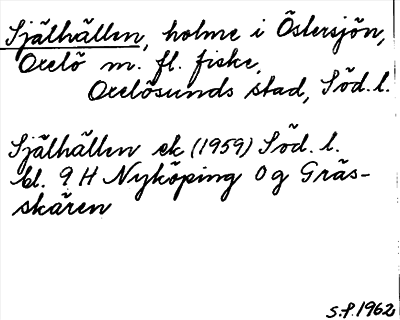 Själhällen, holme i Östersjön,
Oxelö m. fl. fiske,
Oxelösunds stad, Söd. l.
Själhällen ek (1959) Söd. l.
bl. 9 H Nyköping 0 g Gräs-
skären
S.P. 1962